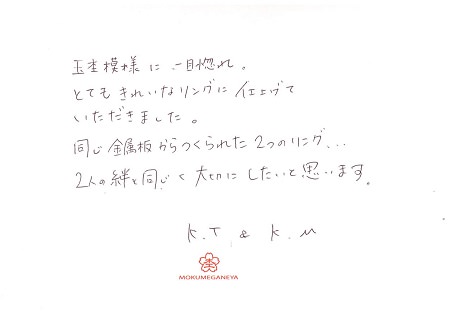 玉杢模様に一目惚れ。
とてもきれいなリングに仕上げて
いただきました。
同じ金属板からつくられた2つのリング...
2人の絆と同じく大切にしたいと思います。
K.T & K.M
MOKUMEGANEYA